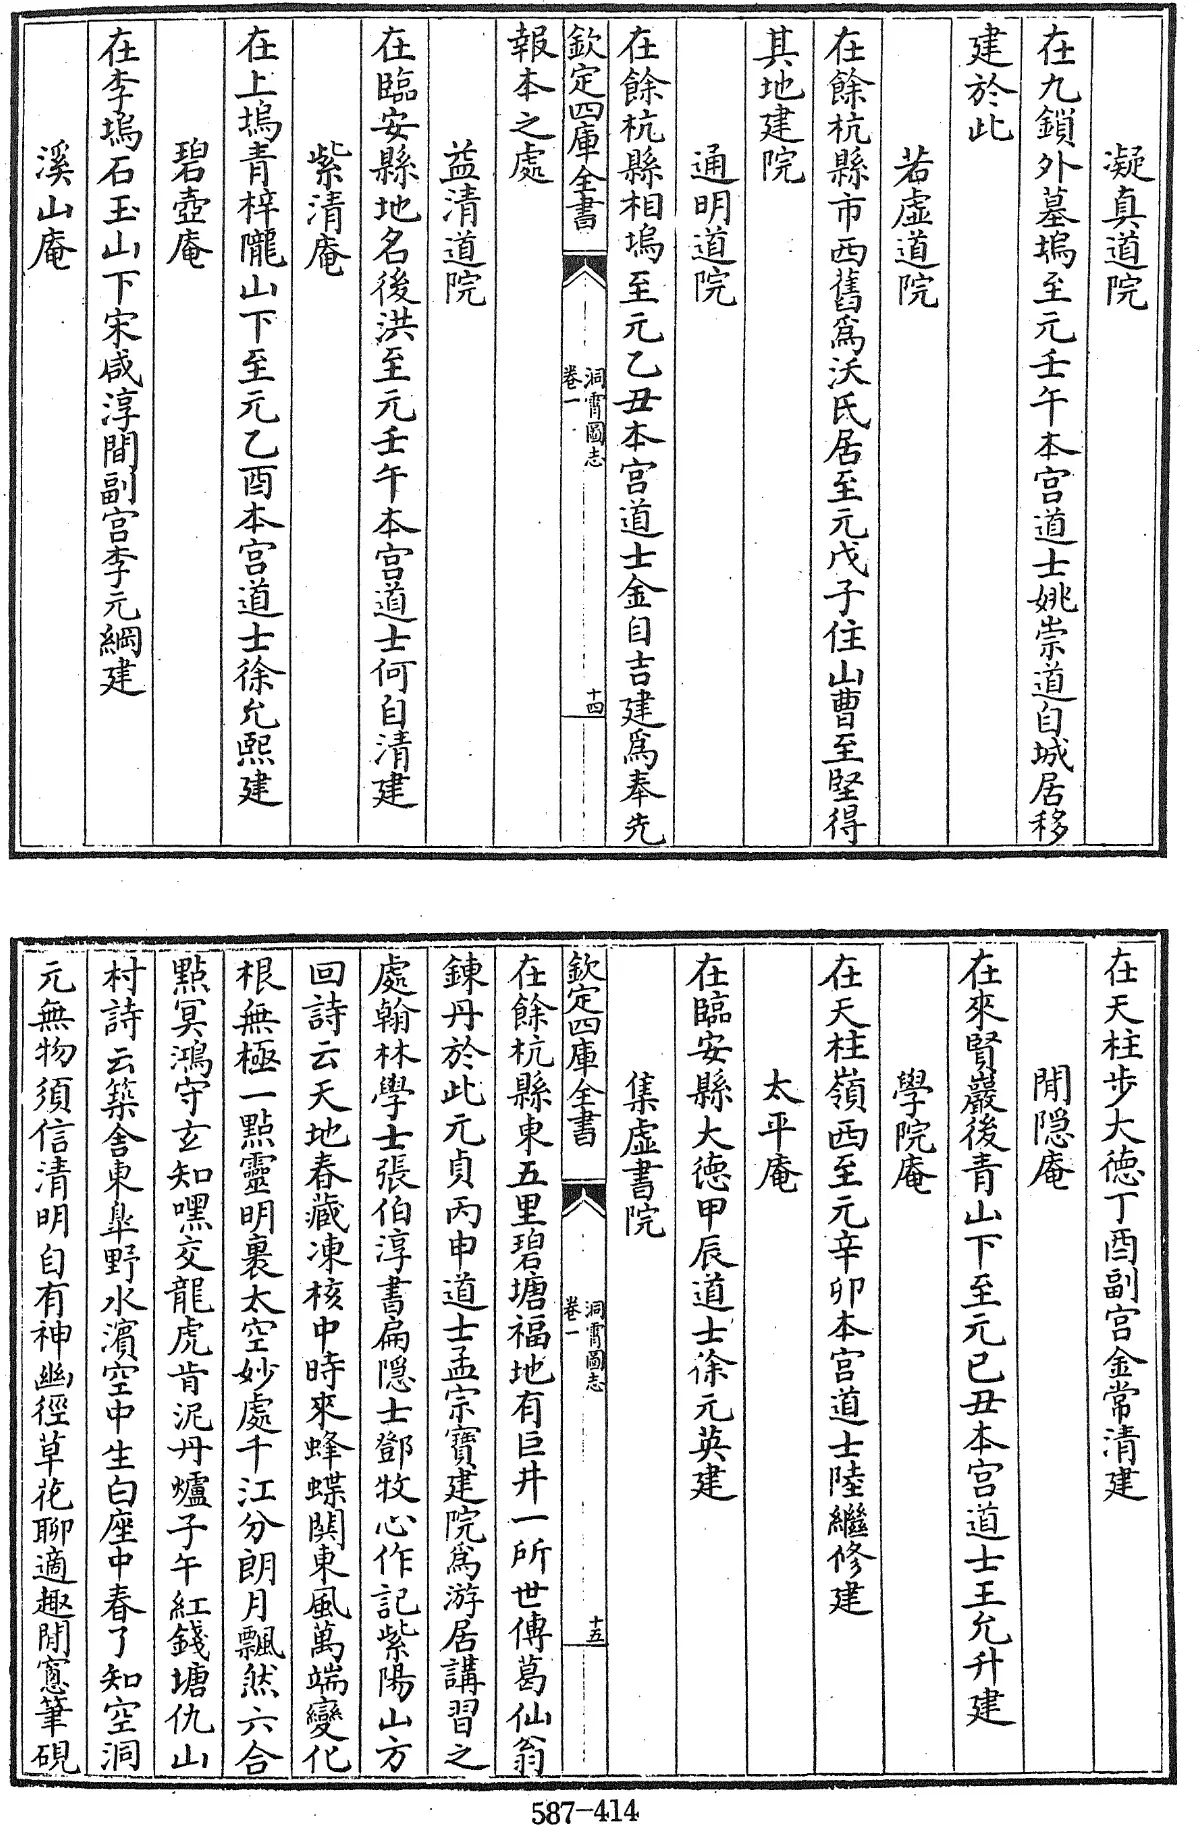 凝真道院
在九鎖外墓塢至元壬午本宮道士姚崇道自城居移
建於此
若虛道院
在餘杭縣市西舊為沃氏居至元戊子住山曹至堅得
其地建院
通明道院
在餘杭縣相塢至元乙丑本宮道士金自吉建為奉先
欽定四庫全書
洞霄圖志
卷一
十四
報本之處
益清道院
在臨安縣地名後洪至元壬午本宮道士何自清建
紫清庵
在上塢青梓隴山下至元乙酉本宮道士徐允熙建
碧壺庵
在李塢石玉山下宋咸淳間副宮李元綱建
溪山庵
在天柱步大德丁酉副宮金常清建
閒隱庵
在來賢巖後青山下至元己丑本宮道士王允升建
學院庵
在天柱嶺西至元辛卯本宮道士陸繼修建
太平庵
在臨安縣大德甲辰道士徐元英建
集虛書院
欽定四庫全書
洞霄圖志
卷一
十五
在餘杭縣東五里碧塘福地有巨井一所世傳葛仙翁
鍊丹於此元貞丙申道士孟宗寶建院為游居講習之
處翰林學士張伯淳書扁隱士鄧牧心作記紫陽山方
回詩云天地春藏凍核中時來蜂蝶閧東風萬端變化
根無極一點靈明裏太空妙處千江分朗月飄然六合
點冥鴻守玄知嘿交龍虎肯泥丹爐子午紅錢塘仇山
村詩云築舍東臯野水濱空中生白座中春了知空洞
元無物須信清明自有神幽徑草花聊適趣閒窓筆硯
587-414